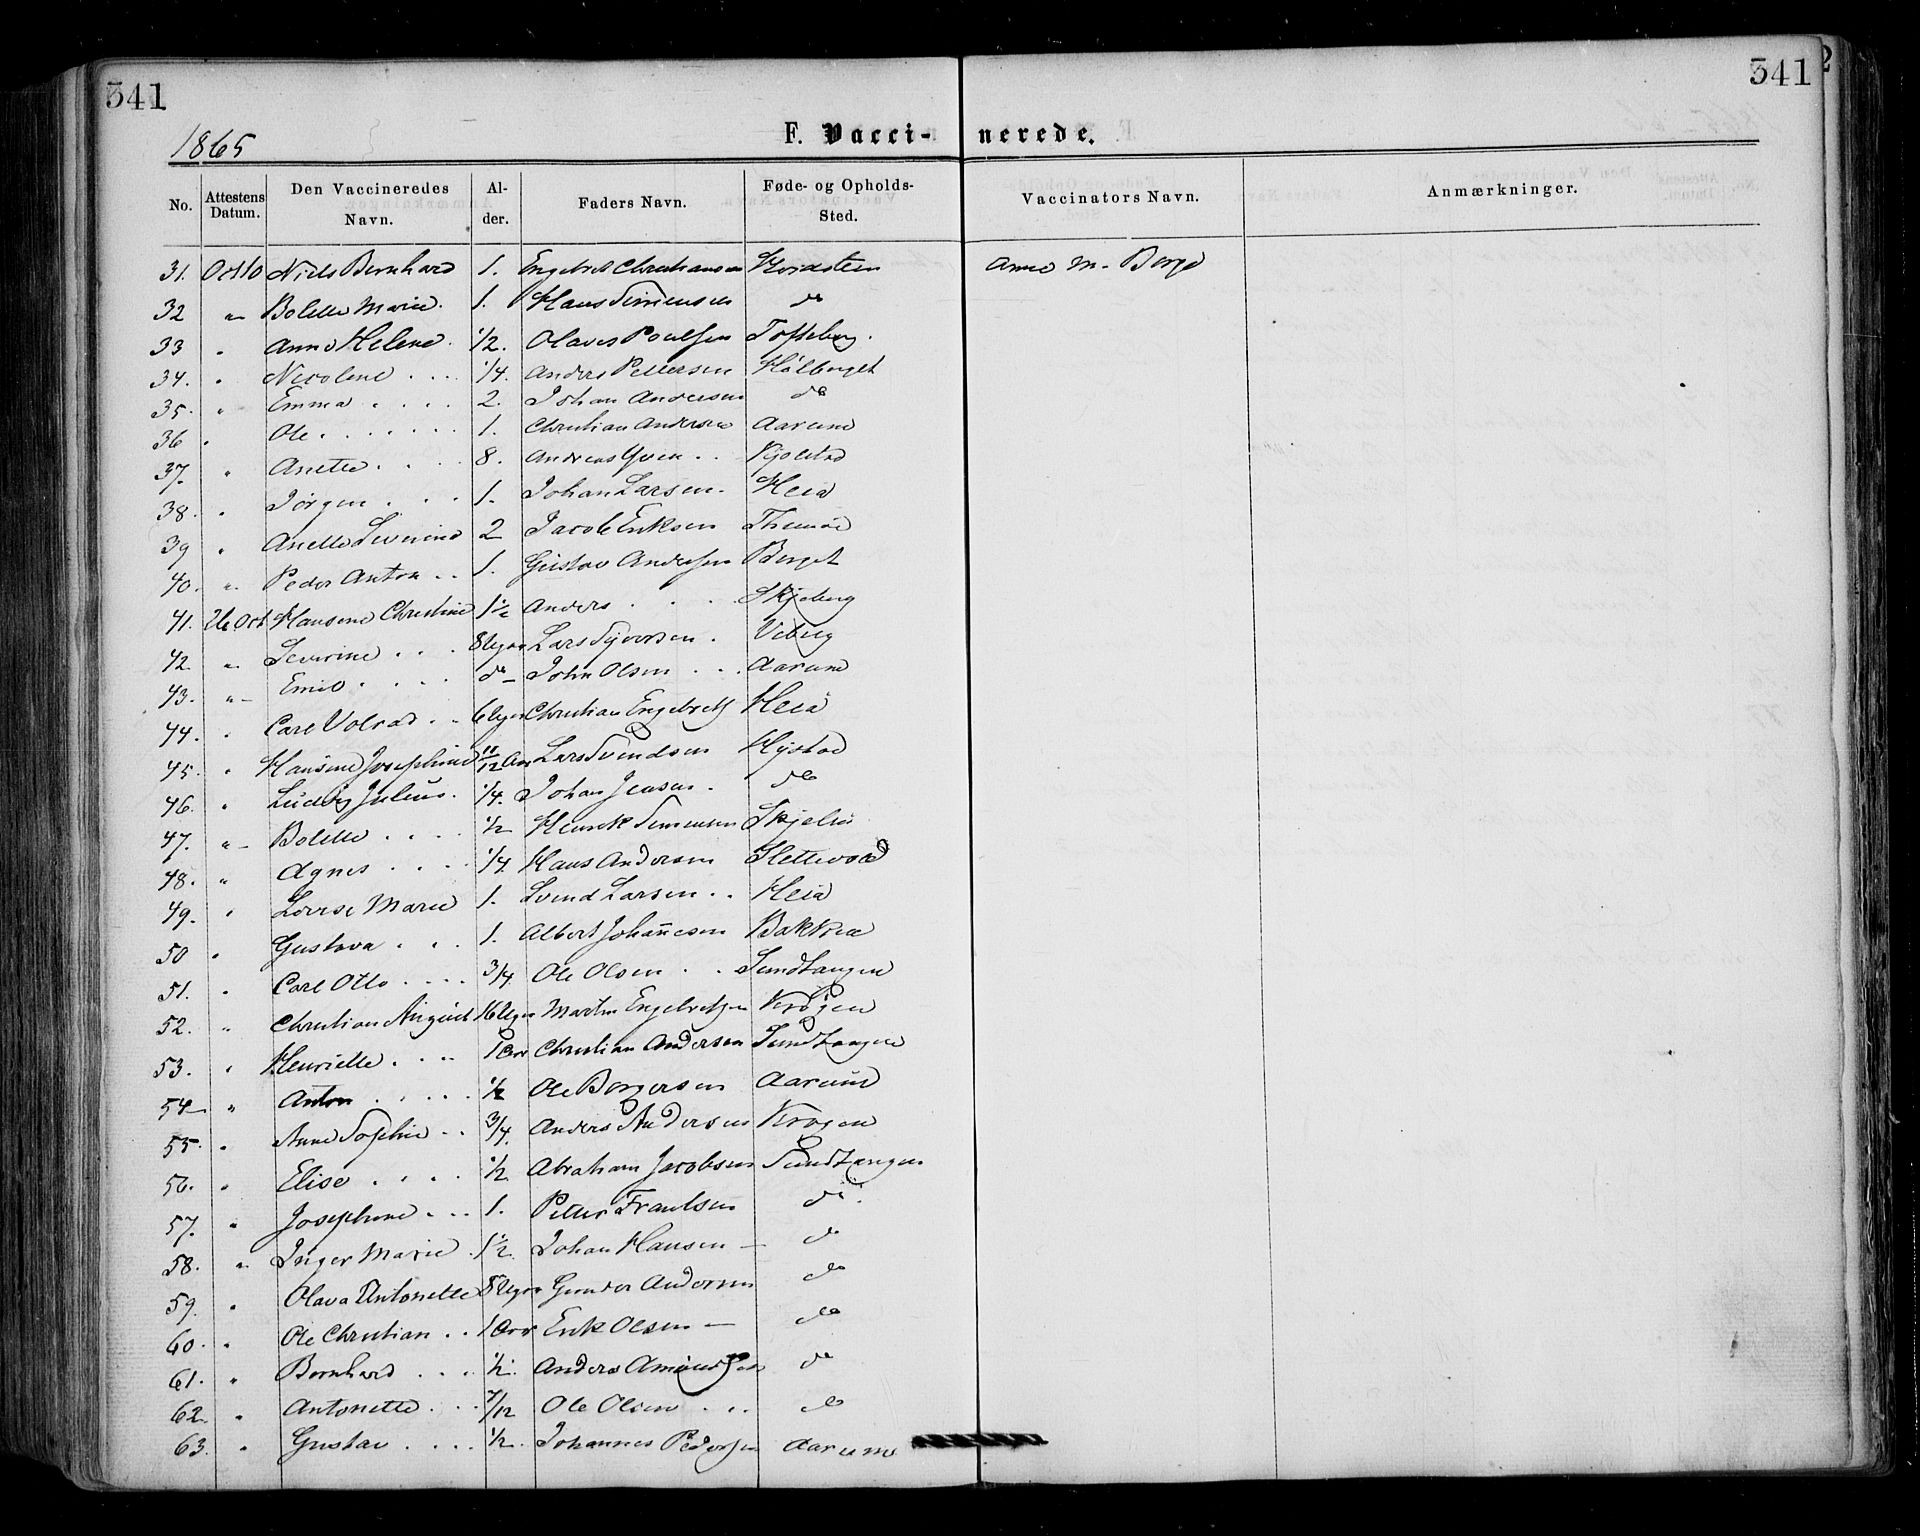 341 341
1865 F. Vacci- nerede.
No. Attestens Datum. Den Vaccineredes Navn. Al- der. Faders Navn. Føde- og Opholds- Sted. Vaccinators Navn. Anmærkninger.
31. Niels Bernhard 1. Engebret Christiansen Anne M. Berge
32 " Bolette Marie. 1. Hans Simensen do
33 " Anne Helene. 1/2. Olaves Poulsen Tofteberg.
34. " Nicoline . . . 1/4. Anders Pettersen Hølberget
35. " Emma . . . . 2. Johan Andersen do
36 " Ole . . . . . . 1. Christian Andersen Aarum
37. " Anette . . . 8. Andreas . .
38. " Jørgen . . . 1. Johan Larsen. Heia
39 " Anette Severine 2 Jacob Eriksen Thunøe
40. " Peder Anton . . 1. Gustav Andersen Berget
41. 26 Oct Hansene Christine 1 1/2 Anders . . . Skjeberg
42. " Severine . . . 8 Uger Lars Syversen . Viberg
43. " Emil . . . . do John Olsen . . . Aarum
44. " Carl Volrad . . 6 Uger Christian Engebrets Heia
45. " Hansine Josephine 11/12 Aar Lars Svendsen
46. " Ludvig Julius. 1/4. Johan Jensen . do
47. " Bolette . . . . 1/2 Henrik Simensen
48. " Agnes . . . . 1/4. Hans Andersen Slettevold
49. " Lovise Marie 1. Svend Larsen . . Heia
50 " Gustava . . . 1. Albert Johannesen
51. " Carl Otto . . . . 3/4. Ole Olsen . . Sundtangen
52. " Christian August 16 Uger Martin Engebretsen Krogen
53. " Henriette . . . 1 Aar Christian Andersen Sundtangen
54 " Anton . . . . . 1/2 Ole Borgersen Aarum
55. " Anne Sophie . . 3/4. Anders Andersen Krogen
56. " Elise . . . . 1/2 Abraham Jacobsen Sundtangen
57. " Josephine . . . 1. Petter Frantsen do
58. " Inger Marie . 1 1/2. Johan Hansen — do
59. " Olava Antonette 8 Uger Gunder Andersen do
60. " Ole Christian . . 1 Aar Erik Olsen — do
61. " Bernhard . . . 1/2. Anders Amundsen do
62. " Antonette . . . 7/12 Ole Olsen . . . do
63. " Gustav . . . . 1/2. Johannes Pedersen Aarum